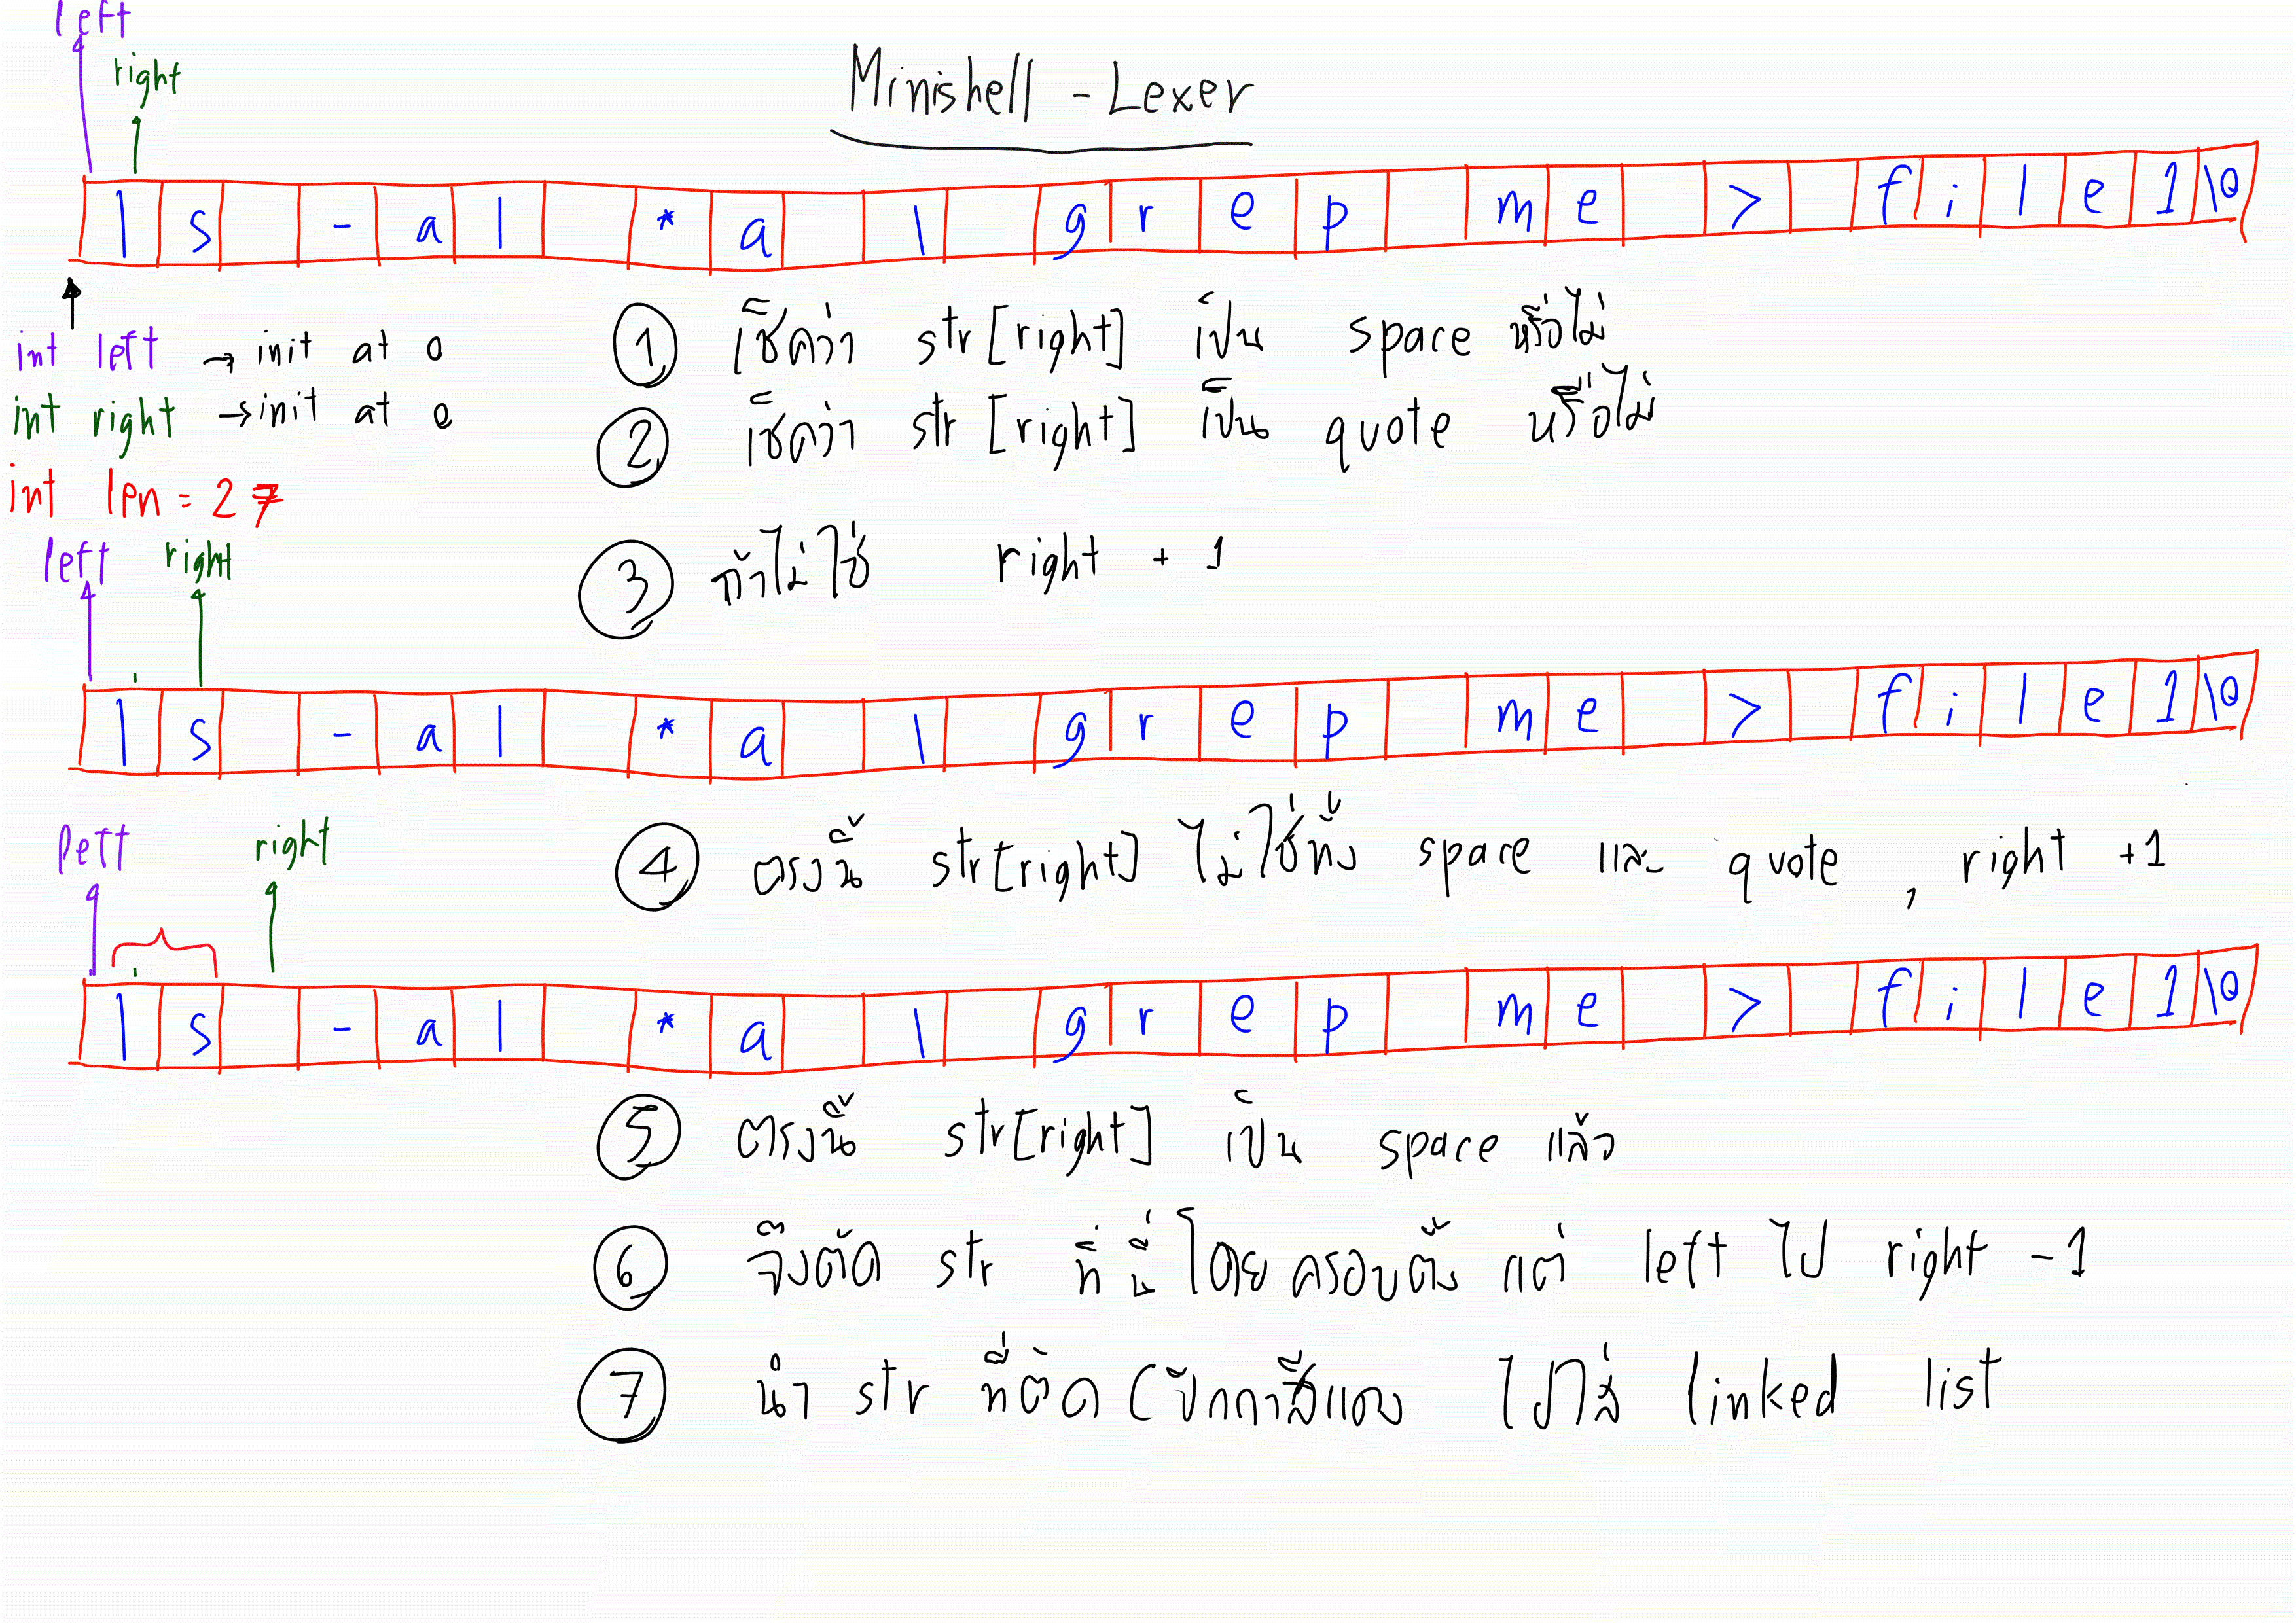 left
right
Minishell - Lexer
l s - a l * a | g r e p m e > f i l e 1 \0
int left → init at 0
int right → init at 0
int len = 27
① เช็คว่า str[right] เป็น space หรือไม่
② เช็คว่า str[right] เป็น quote หรือไม่
③ ถ้าไม่ใช่ right + 1
left right
l s - a l * a | g r e p m e > f i l e 1 \0
④ ตรงนี้ str[right] ไม่ใช่ทั้ง space และ quote , right +1
left right
l s - a l * a | g r e p m e > f i l e 1 \0
⑤ ตรงนี้ str[right] เป็น space แล้ว
⑥ จึงตัด str ที่นี่ โดยครอบตั้งแต่ left ไป right -1
⑦ นำ str ที่ตัด (ปีกกาสีแดง ไปใส่ linked list